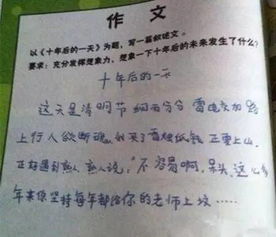 作文
以《十年后的一天》为题，写一篇叙述文。
要求：充分发挥想象力，想象一下十年后的未来发生了什么？
十年后的一天
这天是清明节 细雨纷纷 雷电交加 路
上行人欲断魂 我买了香烛纸钱 正要上山
正好遇到熟人 熟人说："不容易啊，呆头，这么多
年来你坚持每年都给你的老师上坟……